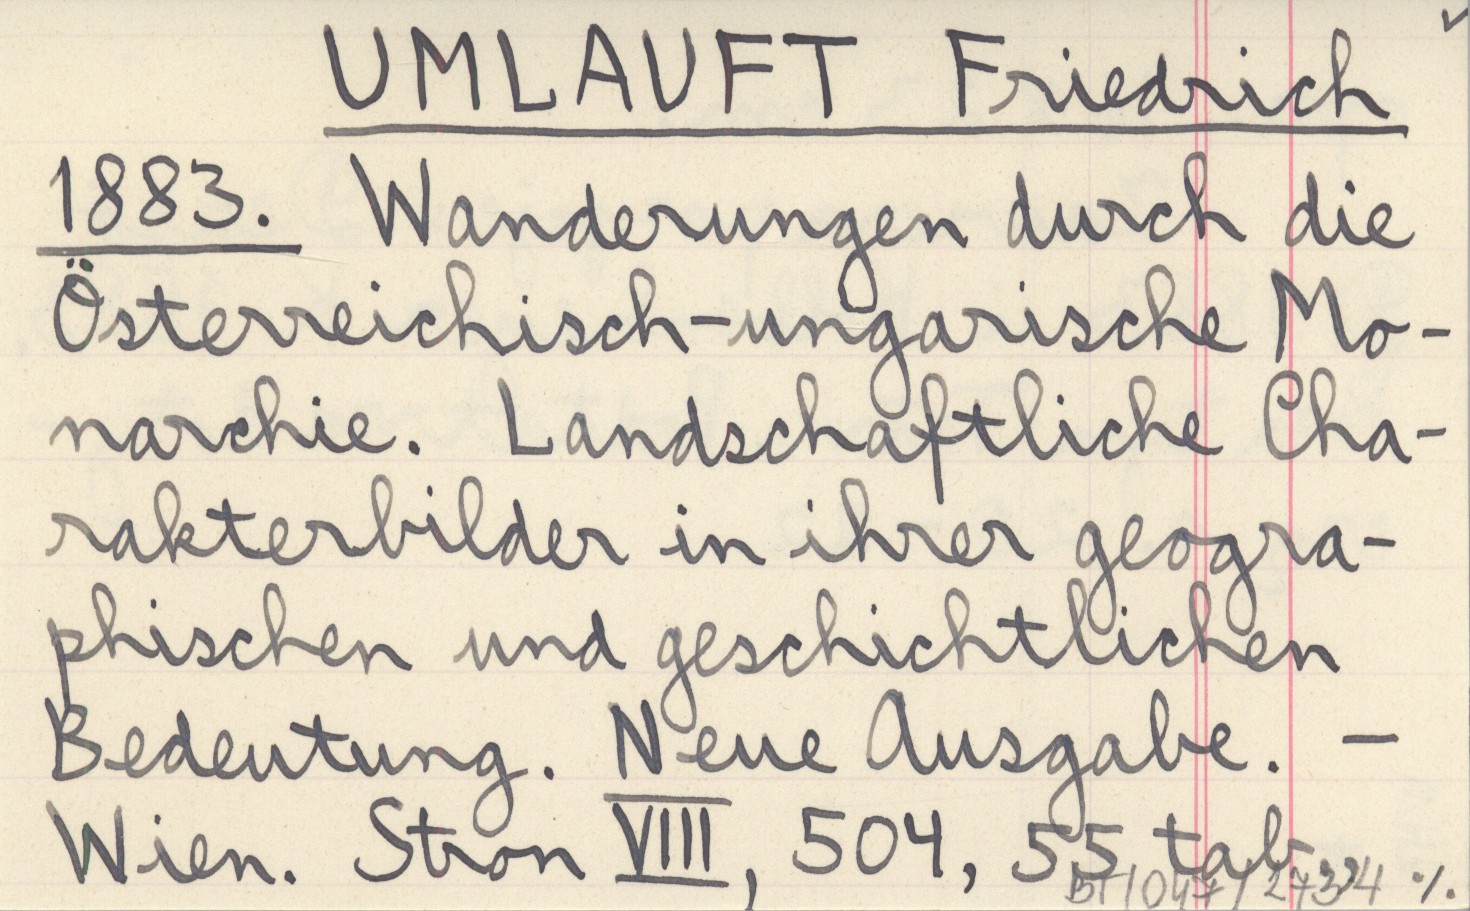 UMLAUFT Friedrich
1883. Wanderungen durch die
Österreichisch-ungarische Mo-
narchie. Landschaftliche Cha-
rakterbilder in ihrer geogra-
phischen und geschichtlichen
Bedeutung. Neue Ausgabe. —
Wien. Stron VIII, 504, 55 tab.